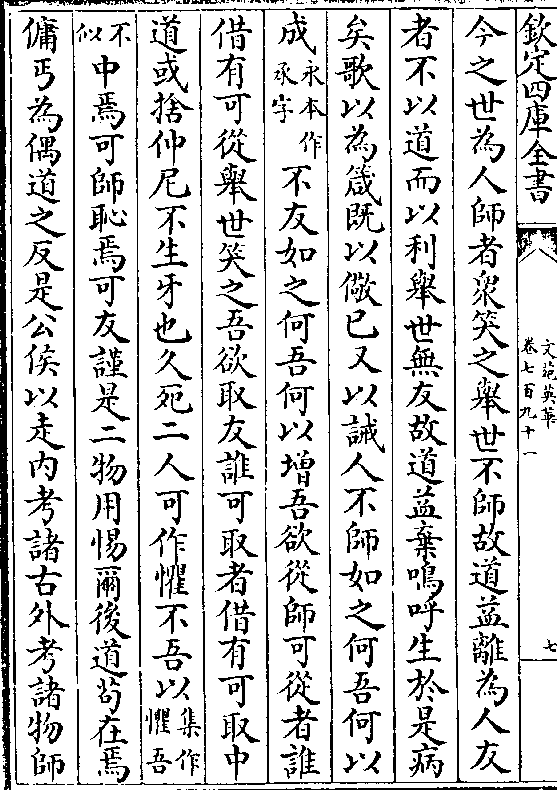 欽定四庫全書
文苑英華
卷七百九十一
七
今之世為人師者衆笑之舉世不師故道益離為人友
者不以道而以利舉世無友故道益棄嗚呼生於是病
矣歌以為箴既以儆已又以誡人不師如之何吾何以
成永本作承字不友如之何吾何以增吾欲從師可從者誰
借有可從舉世笑之吾欲取友誰可取者借有可取中
道或捨仲尼不生牙也久死二人可作懼不吾以集作懼吾
不似中焉可師恥焉可友謹是二物用惕爾後道苟在焉
傭丐為偶道之反是公侯以走內考諸古外考諸物師